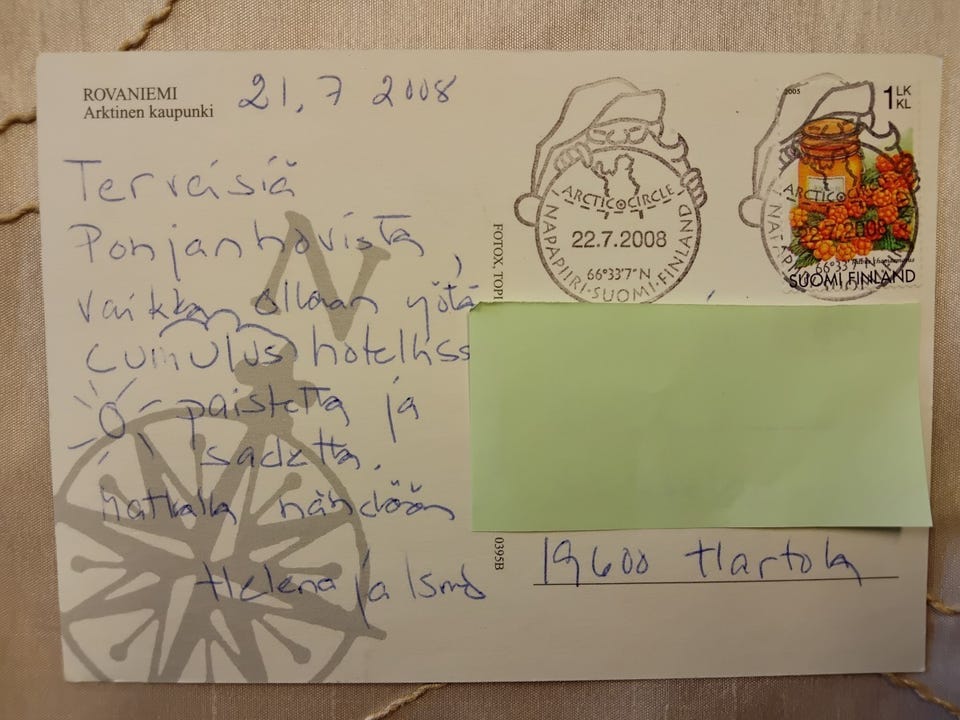 ROVANIEMI
Arktinen kaupunki
21.7 2008
Terveisiä
Pohjanhovista,
vaikka ollaan yötä
cumulus hotelliss
paistetta ja
sadetta.
Matkalla nähdään
Helena ja Ismo
FOTOX, TOPI
0395B
ARCTIC CIRCLE
22.7.2008
66°33'7"N
NAPAPIIRI-SUOMI-FINLAND
2005
1 LK
KL
ARCTIC CIRCLE
2008
66°33'7"N
SUOMI FINLAND
19600 Hartola